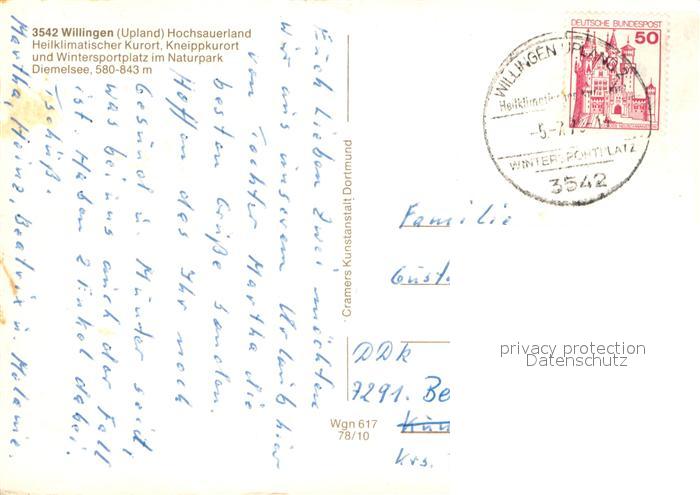 3542 Willingen (Upland) Hochsauerland
Heilklimatischer Kurort, Kneippkurort
und Wintersportplatz im Naturpark
Diemelsee, 580-843 m
Euch lieben zwei möchten
wir aus unserem Urlaub hier
von Tochter Martha die
besten Grüße senden.
Hoffen das Ihr noch
Gesund u. Munter seid,
was bei uns auch der Fall
ist. Haben 2 Enkel dabei.
Tschüß.
Martha, Heinz, Beatrix u. Melanie.
Cramers Kunstanstalt Dortmund
Wgn 617
78/10
DEUTSCHE BUNDESPOST
50
WILLINGEN UPLAND
Heilklimatischer
WINTERSPORTPLATZ
3542
Familie
Gust
DDR
7291. Be
Krs.
privacy protection
Datenschutz